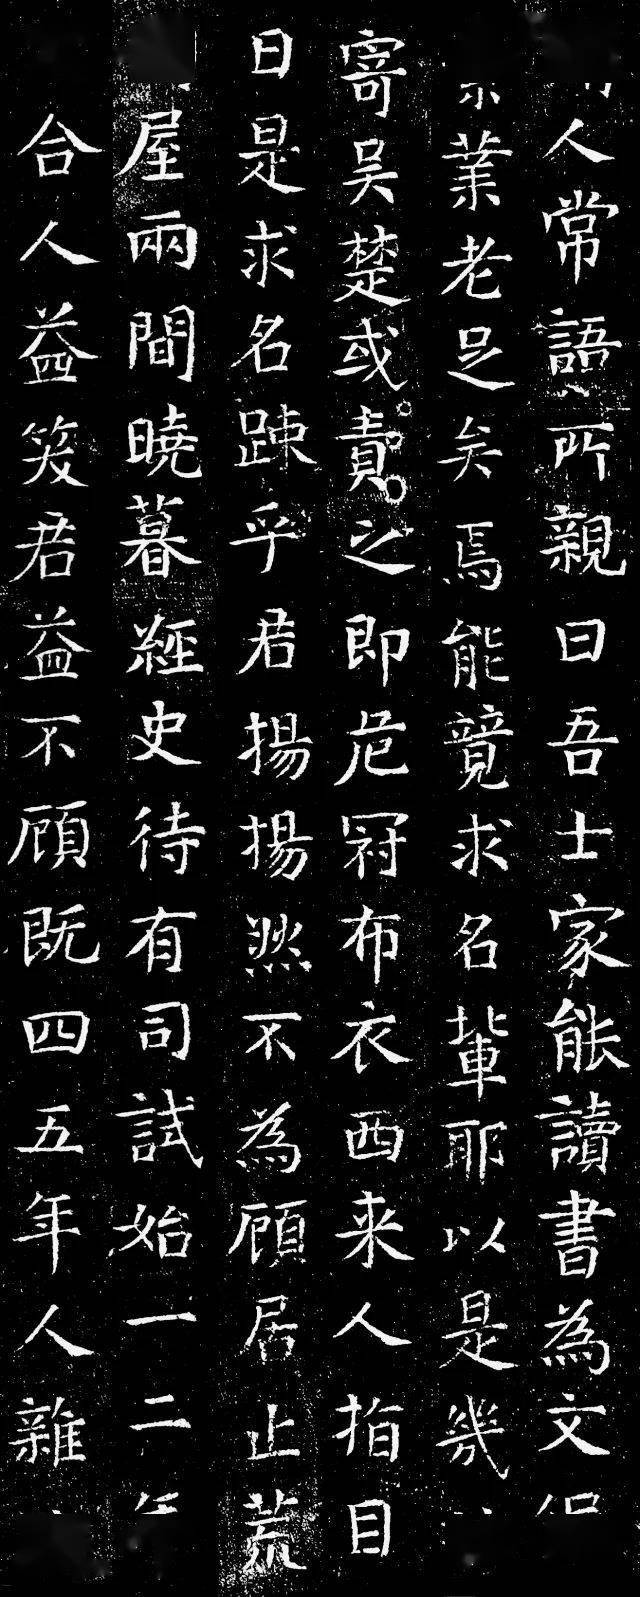 人常語所親曰吾士家能讀書為文
業老足矣焉能竟求名輩耶以是幾
寄吴楚或責之即危冠布衣西来人指目
曰是求名踈乎君揚揚然不為顧居止荒
屋兩間曉暮經史待有司試始一二年
合人益笑君益不顧既四五年人雜